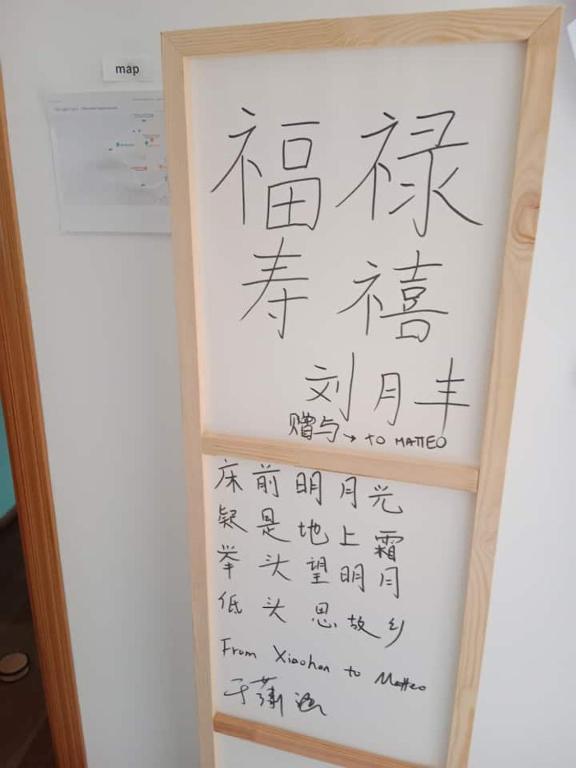 map
福禄
寿禧
刘月丰
赠与→ TO MATTEO
床前明月光
疑是地上霜
举头望明月
低头思故乡
From Xiaohan to Matteo
于潇涵